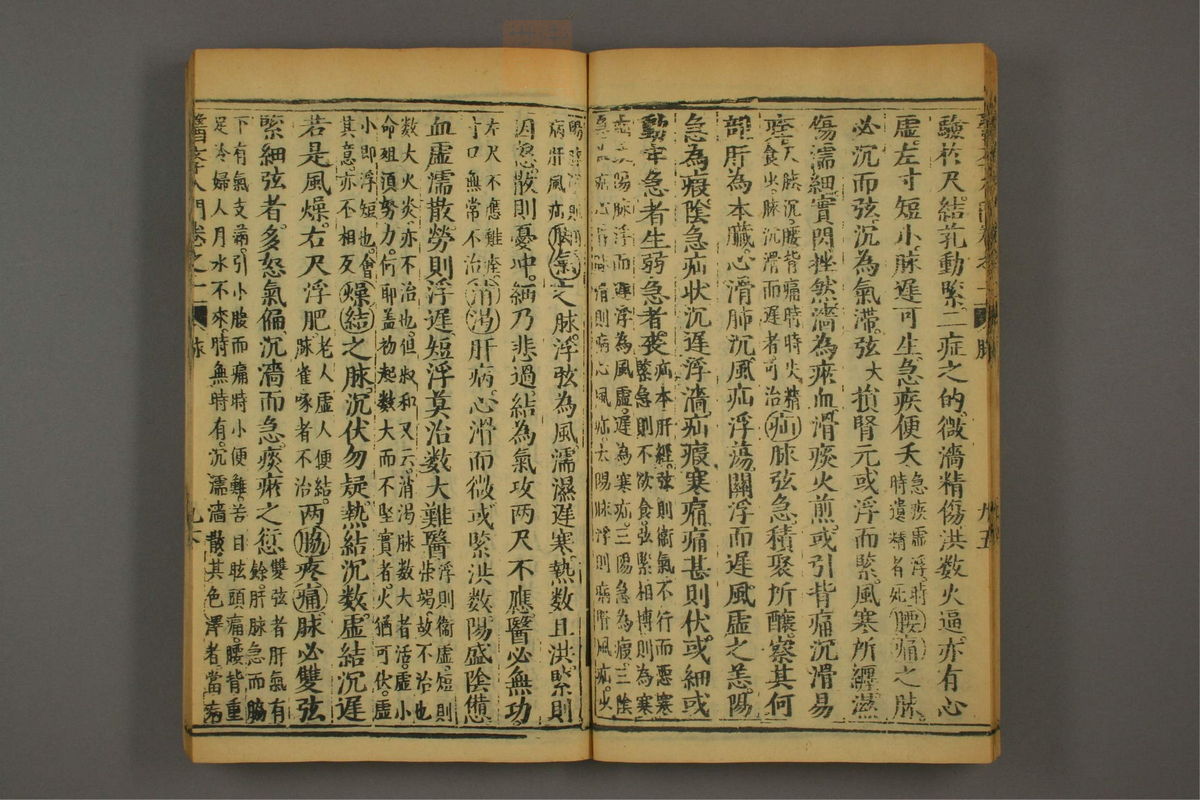 驗於尺結芤動緊二症之的微濇精傷洪数火逼亦有心
虛左寸短小脉遲可生急疾便夭急疾虛浮時時遺精者死腰痛之脉
必沉而弦沉為氣滯弦大損腎元或浮而緊風寒所纏濕
傷濡細實閃挫然濇為瘀血滑痰火煎或引背痛沉滑易
痊尺脉沉腰背痛時時失精食少脉沉滑而遲者可治疝脉弦急積聚所釀察其何
部肝為本臟心滑肺沉風疝浮蕩關浮而遲風虛之恙陽
急為瘕陰急疝状沉遲浮濇疝瘕寒痛痛甚則伏或細或
動牢急者生弱急者喪疝本肝經弦則衛氣不行而惡寒緊急則不欲食弦緊相搏則為寒
疝三陽脉浮而遲浮為風虛遲為寒疝三陽急為瘕三陰
急 疝心脉 滑則病心風疝太陽脉浮則病腎風疝少
陽脉 則
病肝風疝脚氣之脉浮弦為風濡濕遲寒熱数且洪緊則
因怒散則憂冲細乃悲過結為氣攻两尺不應醫必無功
左尺不應難痊寸口無常不治消渴肝病心滑而微或緊洪数陽盛陰憊
血虛濡散勞則浮遲短浮莫治数大難醫浮則衛虛短則柴竭故不治也
数大火炎亦不治也但叔和又云消渴脉数大者活虛小
命殂須努力何耶盖初起数大而不堅實者火猶可伏虛
小即浮短也會其意亦不相反燥結之脉沉伏勿疑熱結沉数虛結沉遲
若是風燥右尺浮肥老人虛人便結脉雀啄者不治两脇疼痛脉必雙弦
緊細弦者多怒氣偏沉濇而急痰瘀之愆雙弦者肝氣有餘肝脉急而脇
下有氣支滿引小腹而痛時小便難苦目眩頭痛腰背重
足冷婦人月水不來時無時有沉濡濇散其色澤者當病
醫學入門卷之一
脉
九六
卷之一
脉
九五